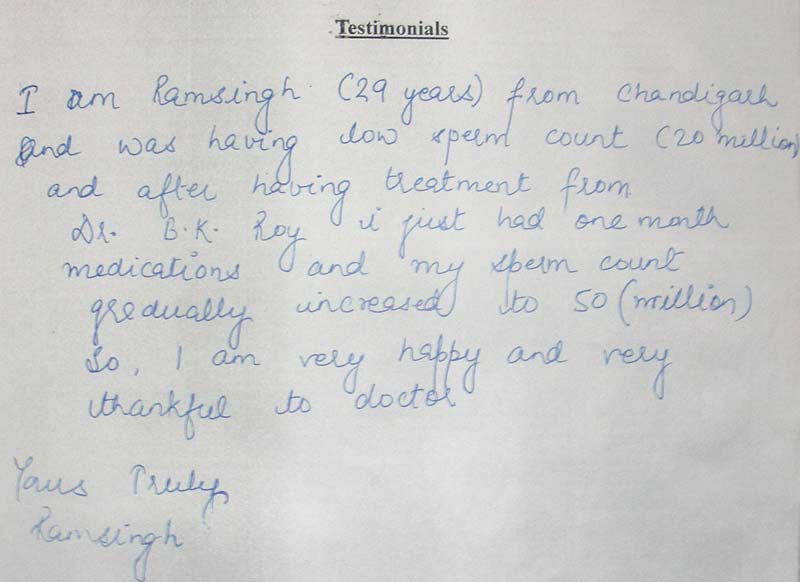 Testimonials
I am Ramsingh (29 years) from Chandigarh
and was having low sperm count (20 million)
and after having treatment from
Dr. B.K. Roy i just had one month
medications and my sperm count
gredually increased to 50 (million)
So, I am very happy and very
thankful to doctor
Yous Truly
Ramsingh